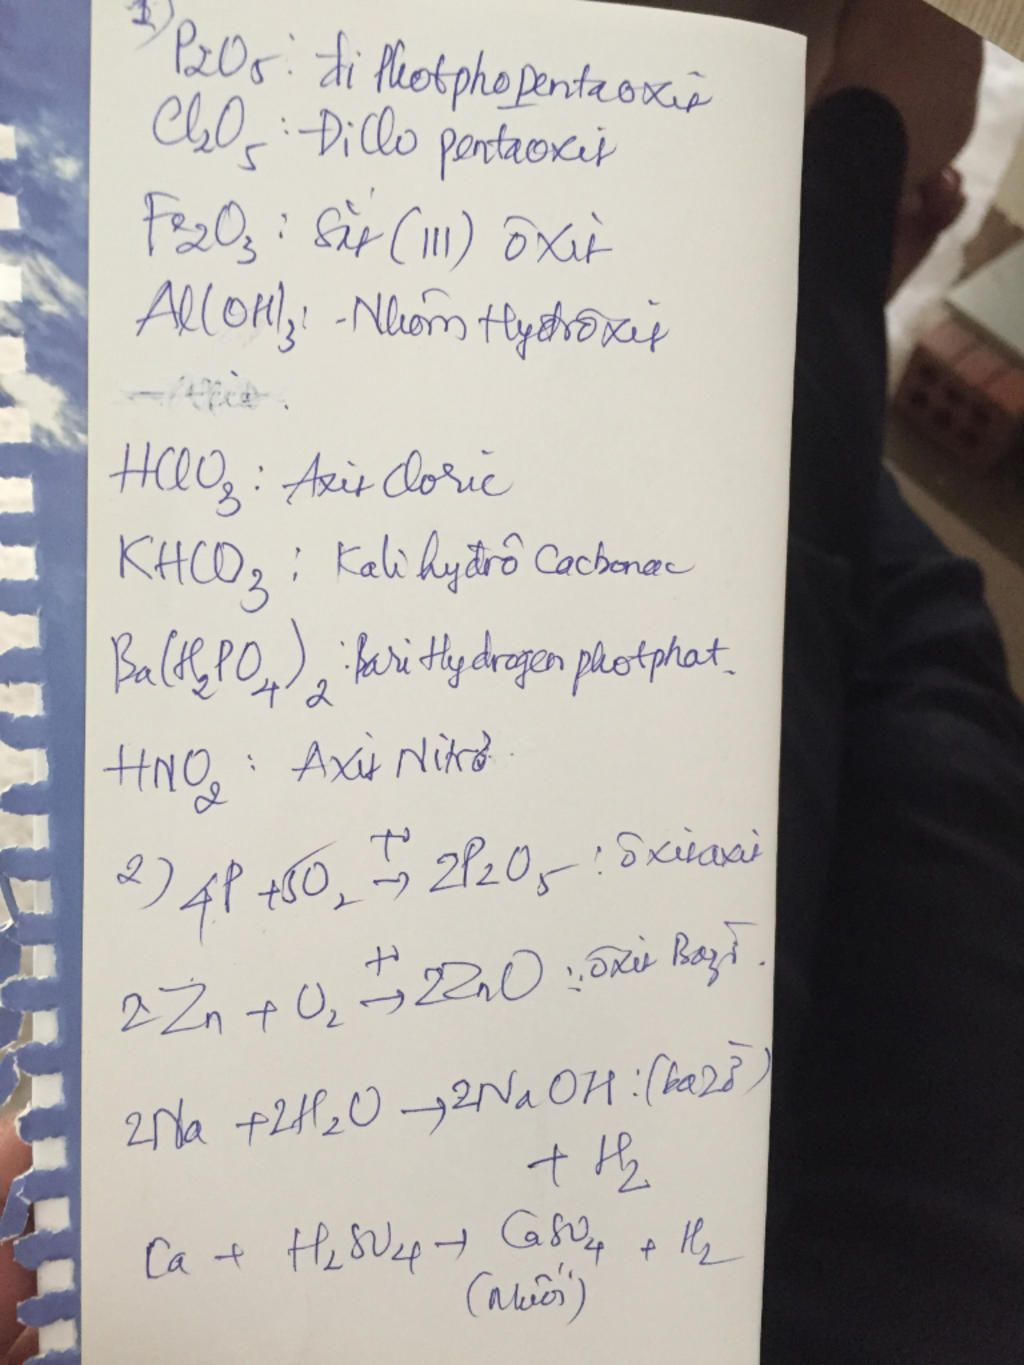 1)
P2O5: đi photphopentaoxit
Cl2O5: Điclo pentaoxit
Fe2O3: Sắt (III) ôxit
Al(OH)3: Nhôm Hyđrôxit
HClO3: Axit cloric
KHCO3: Kali hyđrô Cacbonac
Ba(H2PO4)2: Bari Hydrogen photphat.
HNO2: Axit Nitrơ
2) 4P + 5O2 t° → 2P2O5: ôxit axit
2Zn + O2 t° → 2ZnO: ôxit Bazơ.
2Na + 2H2O → 2NaOH: (bazơ)
+ H2
Ca + H2SO4 → CaSO4 + H2
(Muối)